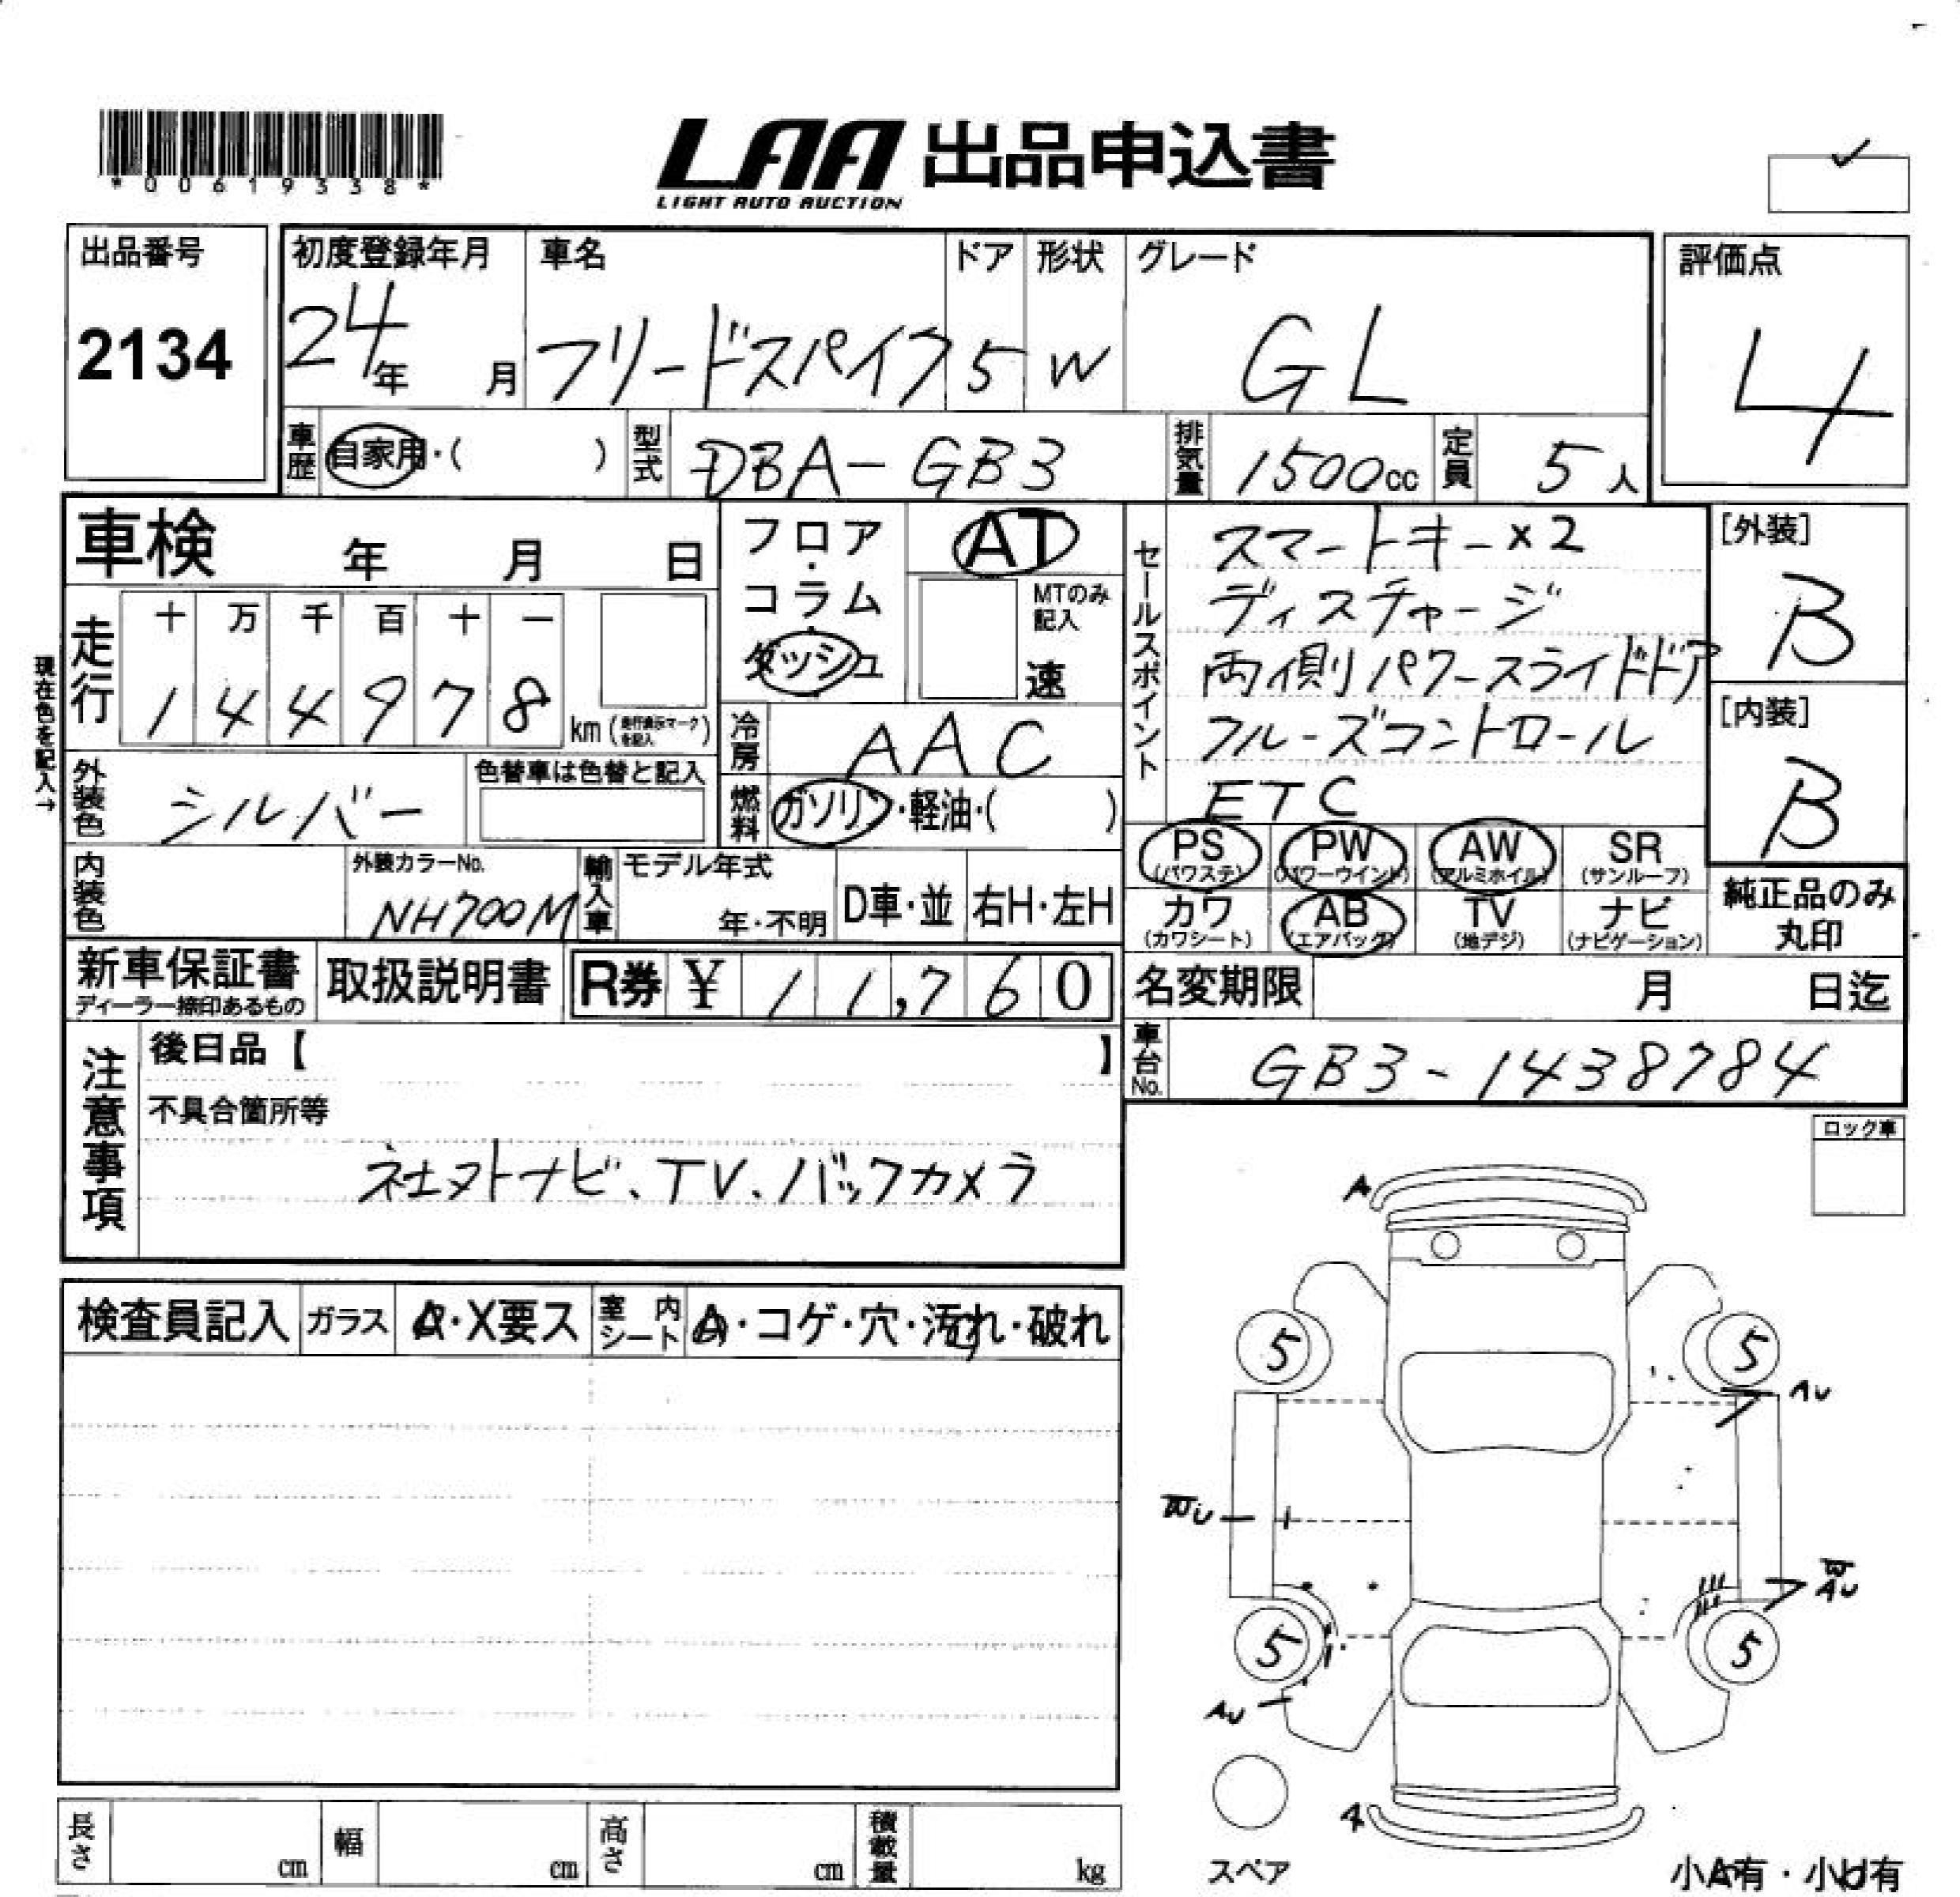 *00619338*
LAA 出品申込書
LIGHT AUTO AUCTION
出品番号 初度登録年月 車名 ドア 形状 グレード 評価点
2134 24年 月 フリードスパイク 5 W GL 4
車歴 自家用・( ) 型式 DBA-GB3 排気量 1500cc 定員 5人
車検 年 月 日
フロア・コラム・ダッシュ
AT
MTのみ記入
速
セールスポイント
スマートキー×2
ディスチャージ
両側パワースライドドア
クルーズコントロール
ETC
[外装]
B
[内装]
B
現在色を記入→
走行 十 万 千 百 十 一
1 4 4 9 7 8 km (走行表示マークを記入)
冷房 AAC
外装色 シルバー 色替車は色替と記入
燃料 ガソリン・軽油・( )
PS (パワステ) PW (パワーウインド) AW (アルミホイル) SR (サンルーフ)
カワ (カワシート) AB (エアバッグ) TV (地デジ) ナビ (ナビゲーション)
純正品のみ丸印
内装色 外装カラーNo. NH700M 輸入車 モデル年式 年・不明 D車・並 右H・左H
新車保証書 ディーラー捺印あるもの 取扱説明書 R券 ¥ 11,760
名変期限 月 日迄
車台No. GB3-1438784
注意事項
後日品【 】
不具合箇所等
社外ナビ、TV、バックカメラ
ロック車
検査員記入 ガラス A・X要ス 室内シート A・コゲ・穴・汚れ・破れ
A
5 5
AU
WU
W
AU
5 5
AU
A
スペア
小A有・小U有
長さ cm 幅 cm 高さ cm 積載量 kg